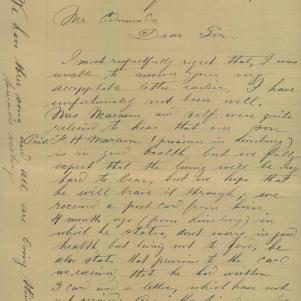 Mr Edmunds
Dear Sir.
I most respectfully regret that, I was
unable to answer your very
acceptable letter earlier. I have
unfortunately not been well.
Mrs Maraun and self were quite
relieved to hear that our son
Pri F H Maraun (prisoner in Limburg)
is in good health, but we fully
expect that the living will be very
hard to bear, but we hope that
he will brave it through, we
received a post card from him
4 months ago (from Limburg) in
which he states, dont worry, in good
health, but living not to good, he
also states that previous to the card
we received, that he had written
1 card and a letter, which have not
We have three sons and all are being